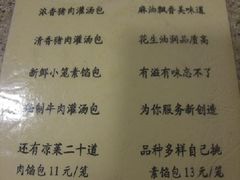 浓香猪肉灌汤包 麻油飘香美味道
清香猪肉灌汤包 花生油调品质高
新鲜小笼素馅包 有滋有味忘不了
制牛肉灌汤包 为你服务新创造
还有凉菜二十道 品种多样自己挑
肉馅包11元/笼 素馅包13元/笼